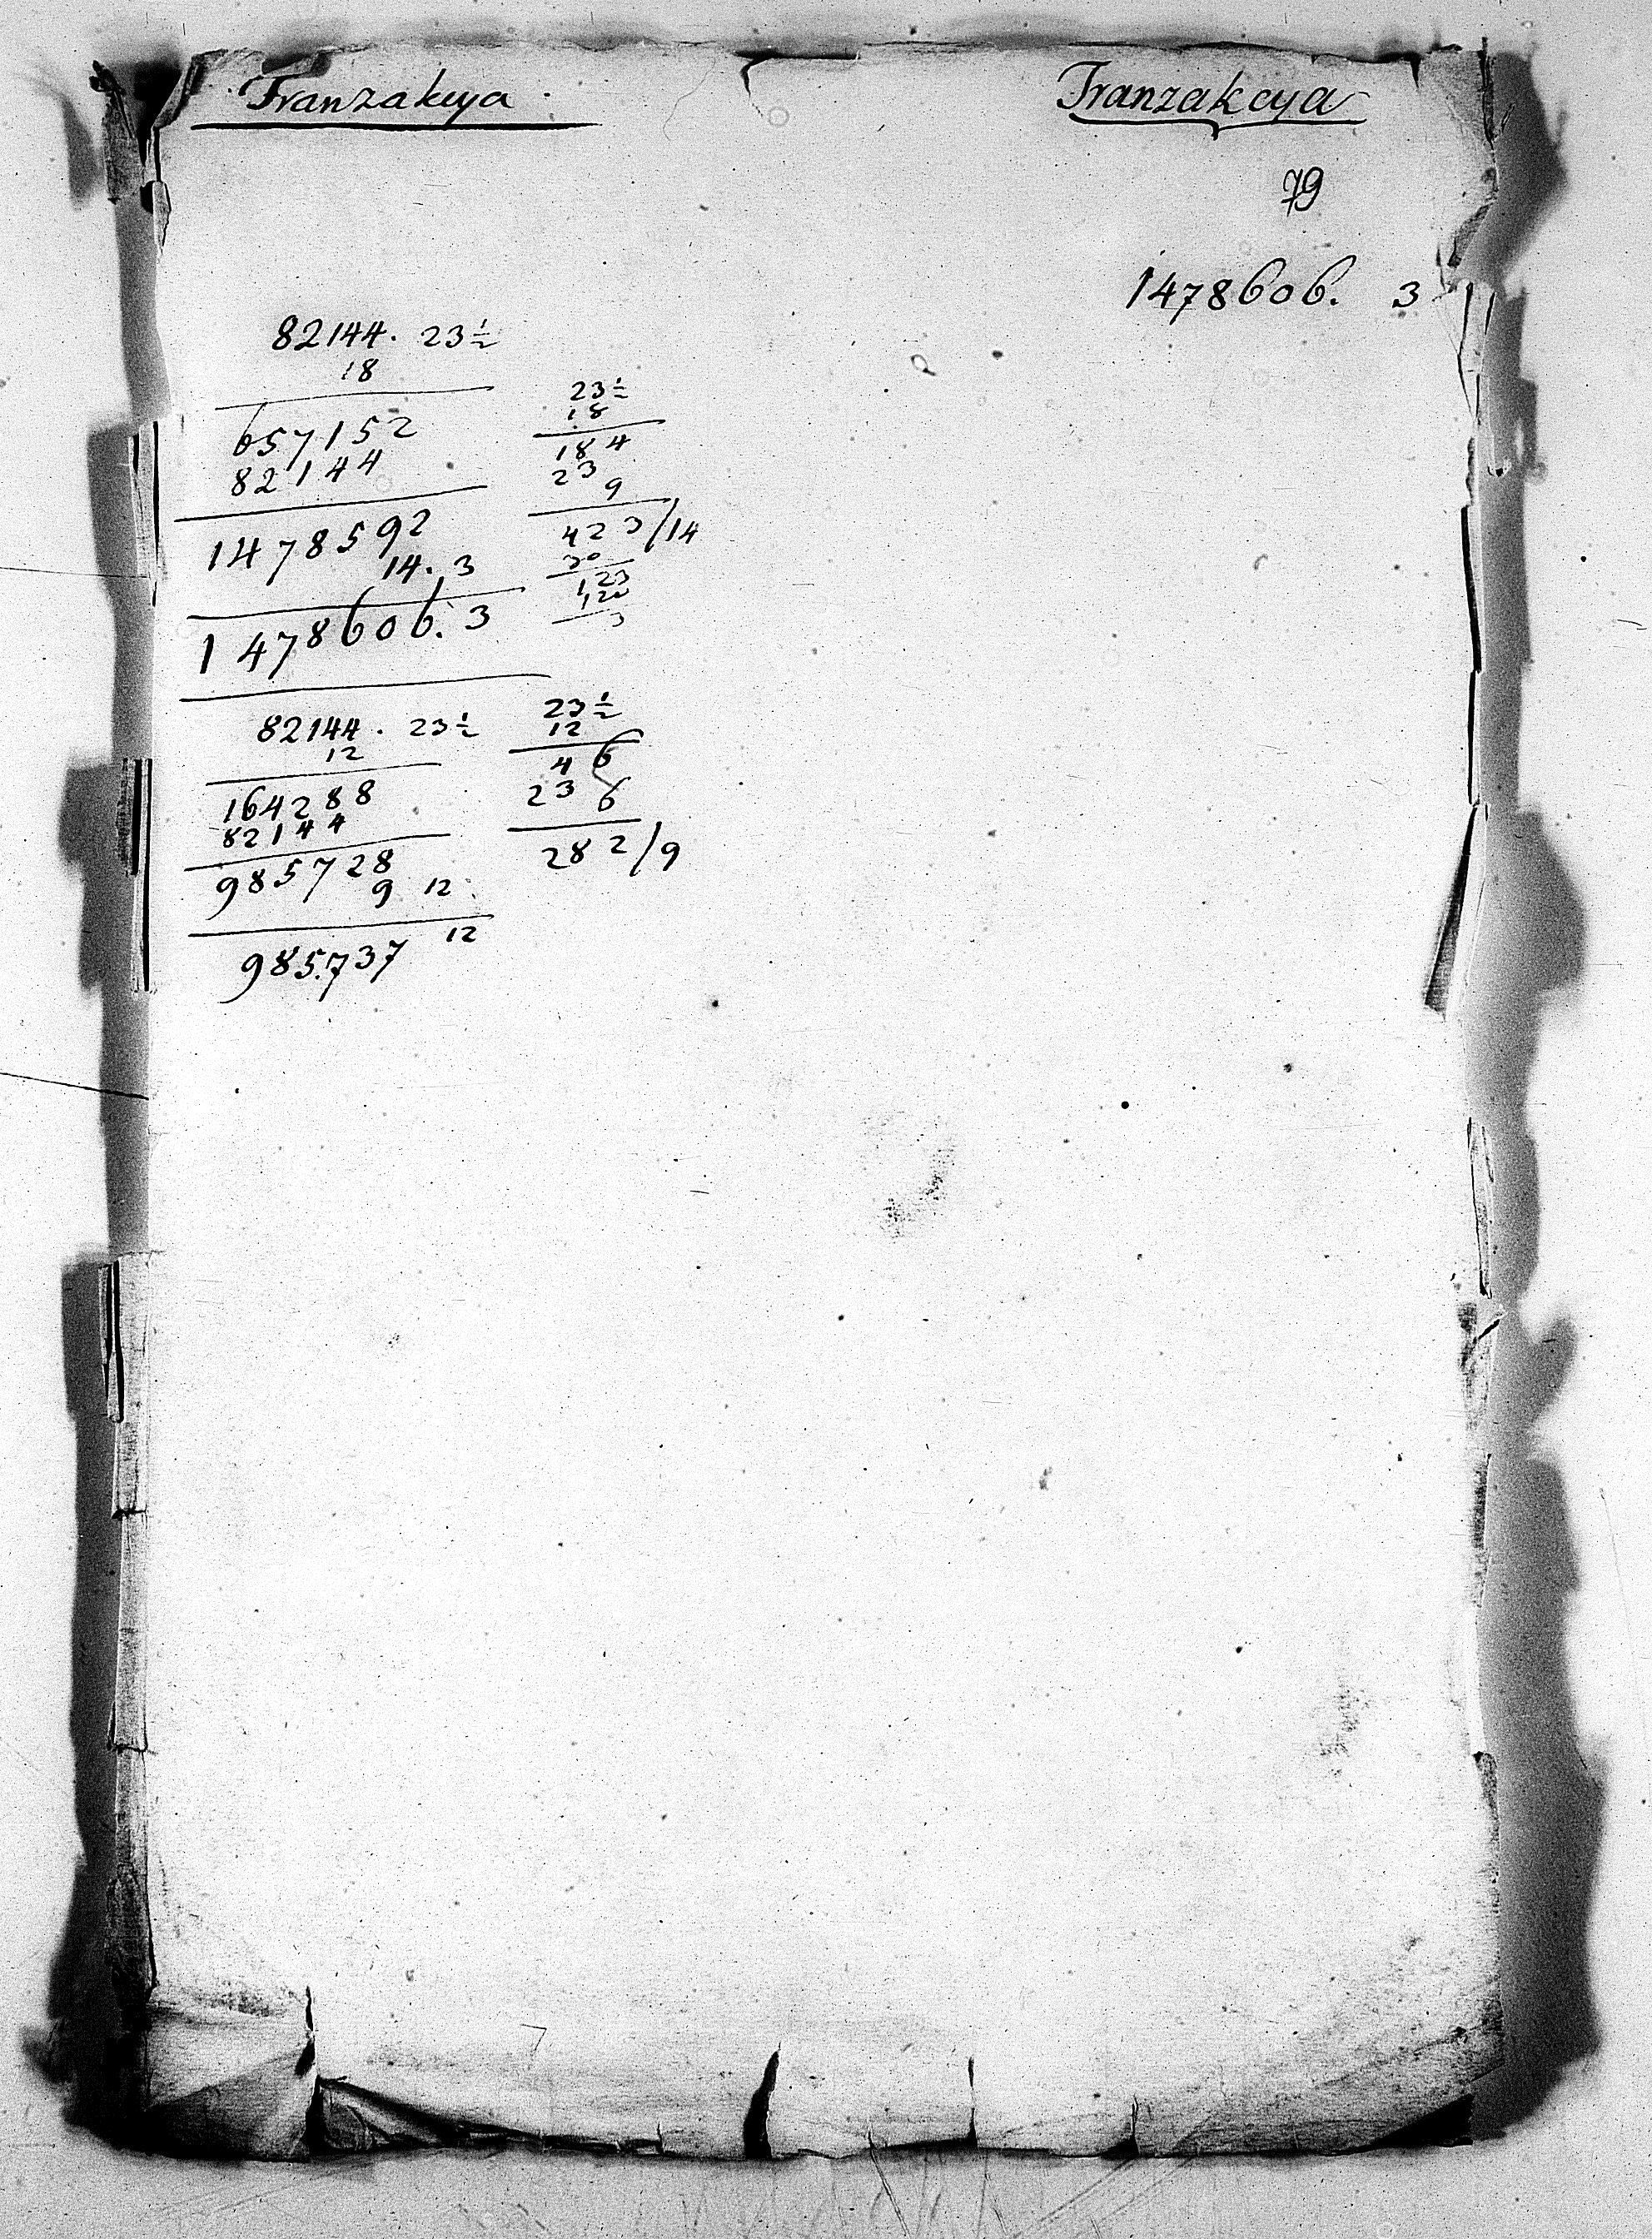 Tranzakcya.
Tranzakcya
79
1478606. 3
82144. 23½
18
657152
82144
1478592
14. 3
1478606. 3
23½
18
184
23
9
423/14
30
123
120
3
82144. 23½
12
164288
82144
985728
9 12
985.737 12
23½
12
46
23
6
282/9